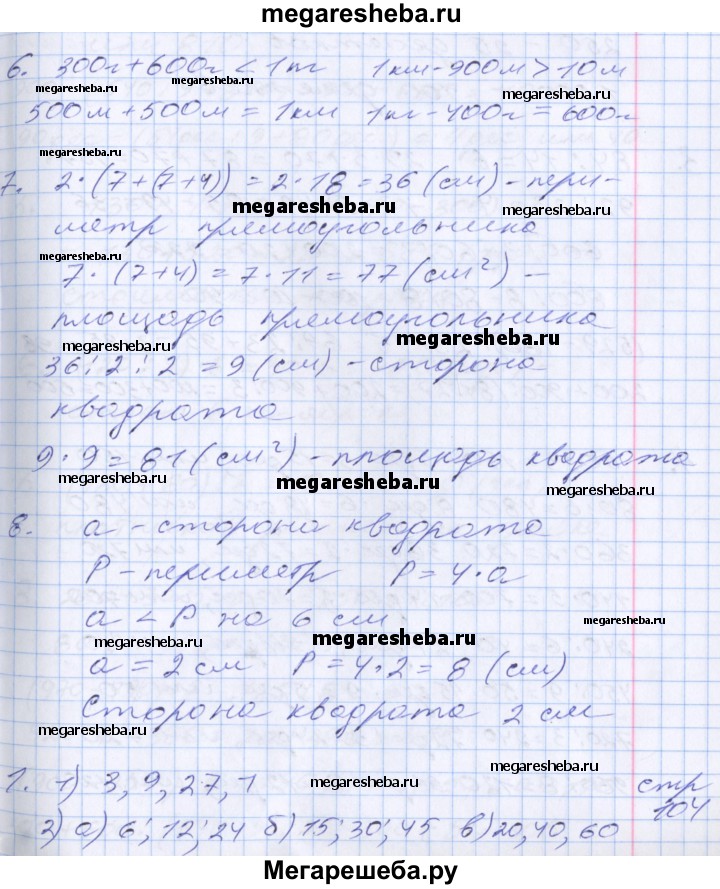 megaresheba.ru
6. 300г+600г < 1кг 1км-900м > 10м
megaresheba.ru
megaresheba.ru
megaresheba.ru
500м+500м = 1км 1кг-400г = 600г
megaresheba.ru
7. 2·(7+(7+4)) = 2·18 = 36 (см) - пери-
megaresheba.ru
megaresheba.ru
метр прямоугольника
megaresheba.ru
7·(7+4) = 7·11 = 77 (см²) –
площадь прямоугольника
megaresheba.ru
megaresheba.ru
36:2:2 = 9 (см) - сторона
megaresheba.ru
квадрата
9·9 = 81 (см²) - площадь квадрата
megaresheba.ru
megaresheba.ru
8. a - сторона квадрата
P - периметр P = 4·a
a < P на 6 см
megaresheba.ru
megaresheba.ru
megaresheba.ru
a = 2 см P = 4·2 = 8 (см)
Сторона квадрата 2 см
megaresheba.ru
megaresheba.ru
1. 1) 3, 9, 27, 1 стр
megaresheba.ru
104
2) а) 6; 12; 24 б) 15; 30; 45 в) 20, 40, 60
Мегарешеба.ру